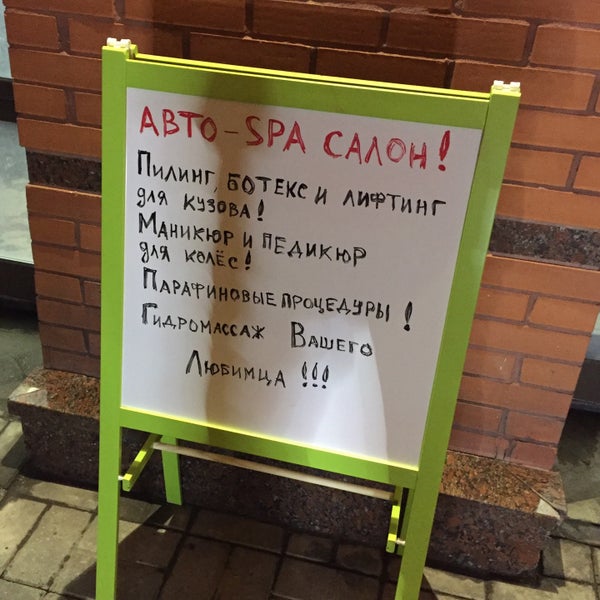 АВТО-SPA САЛОН!
ПИЛИНГ, БОТЕКС И ЛИФТИНГ
ДЛЯ КУЗОВА!
МАНИКЮР И ПЕДИКЮР
ДЛЯ КОЛЁС!
ПАРАФИНОВЫЕ ПРОЦЕДУРЫ!
ГИДРОМАССАЖ ВАШЕГО
ЛЮБИМЦА!!!